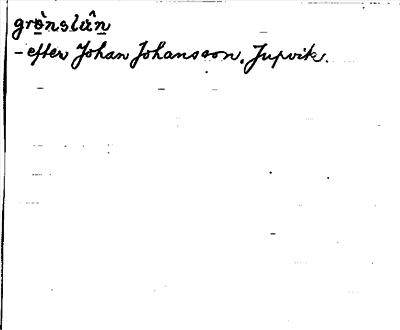 grònslûn
- efter Johan Johansson, Jupvik.